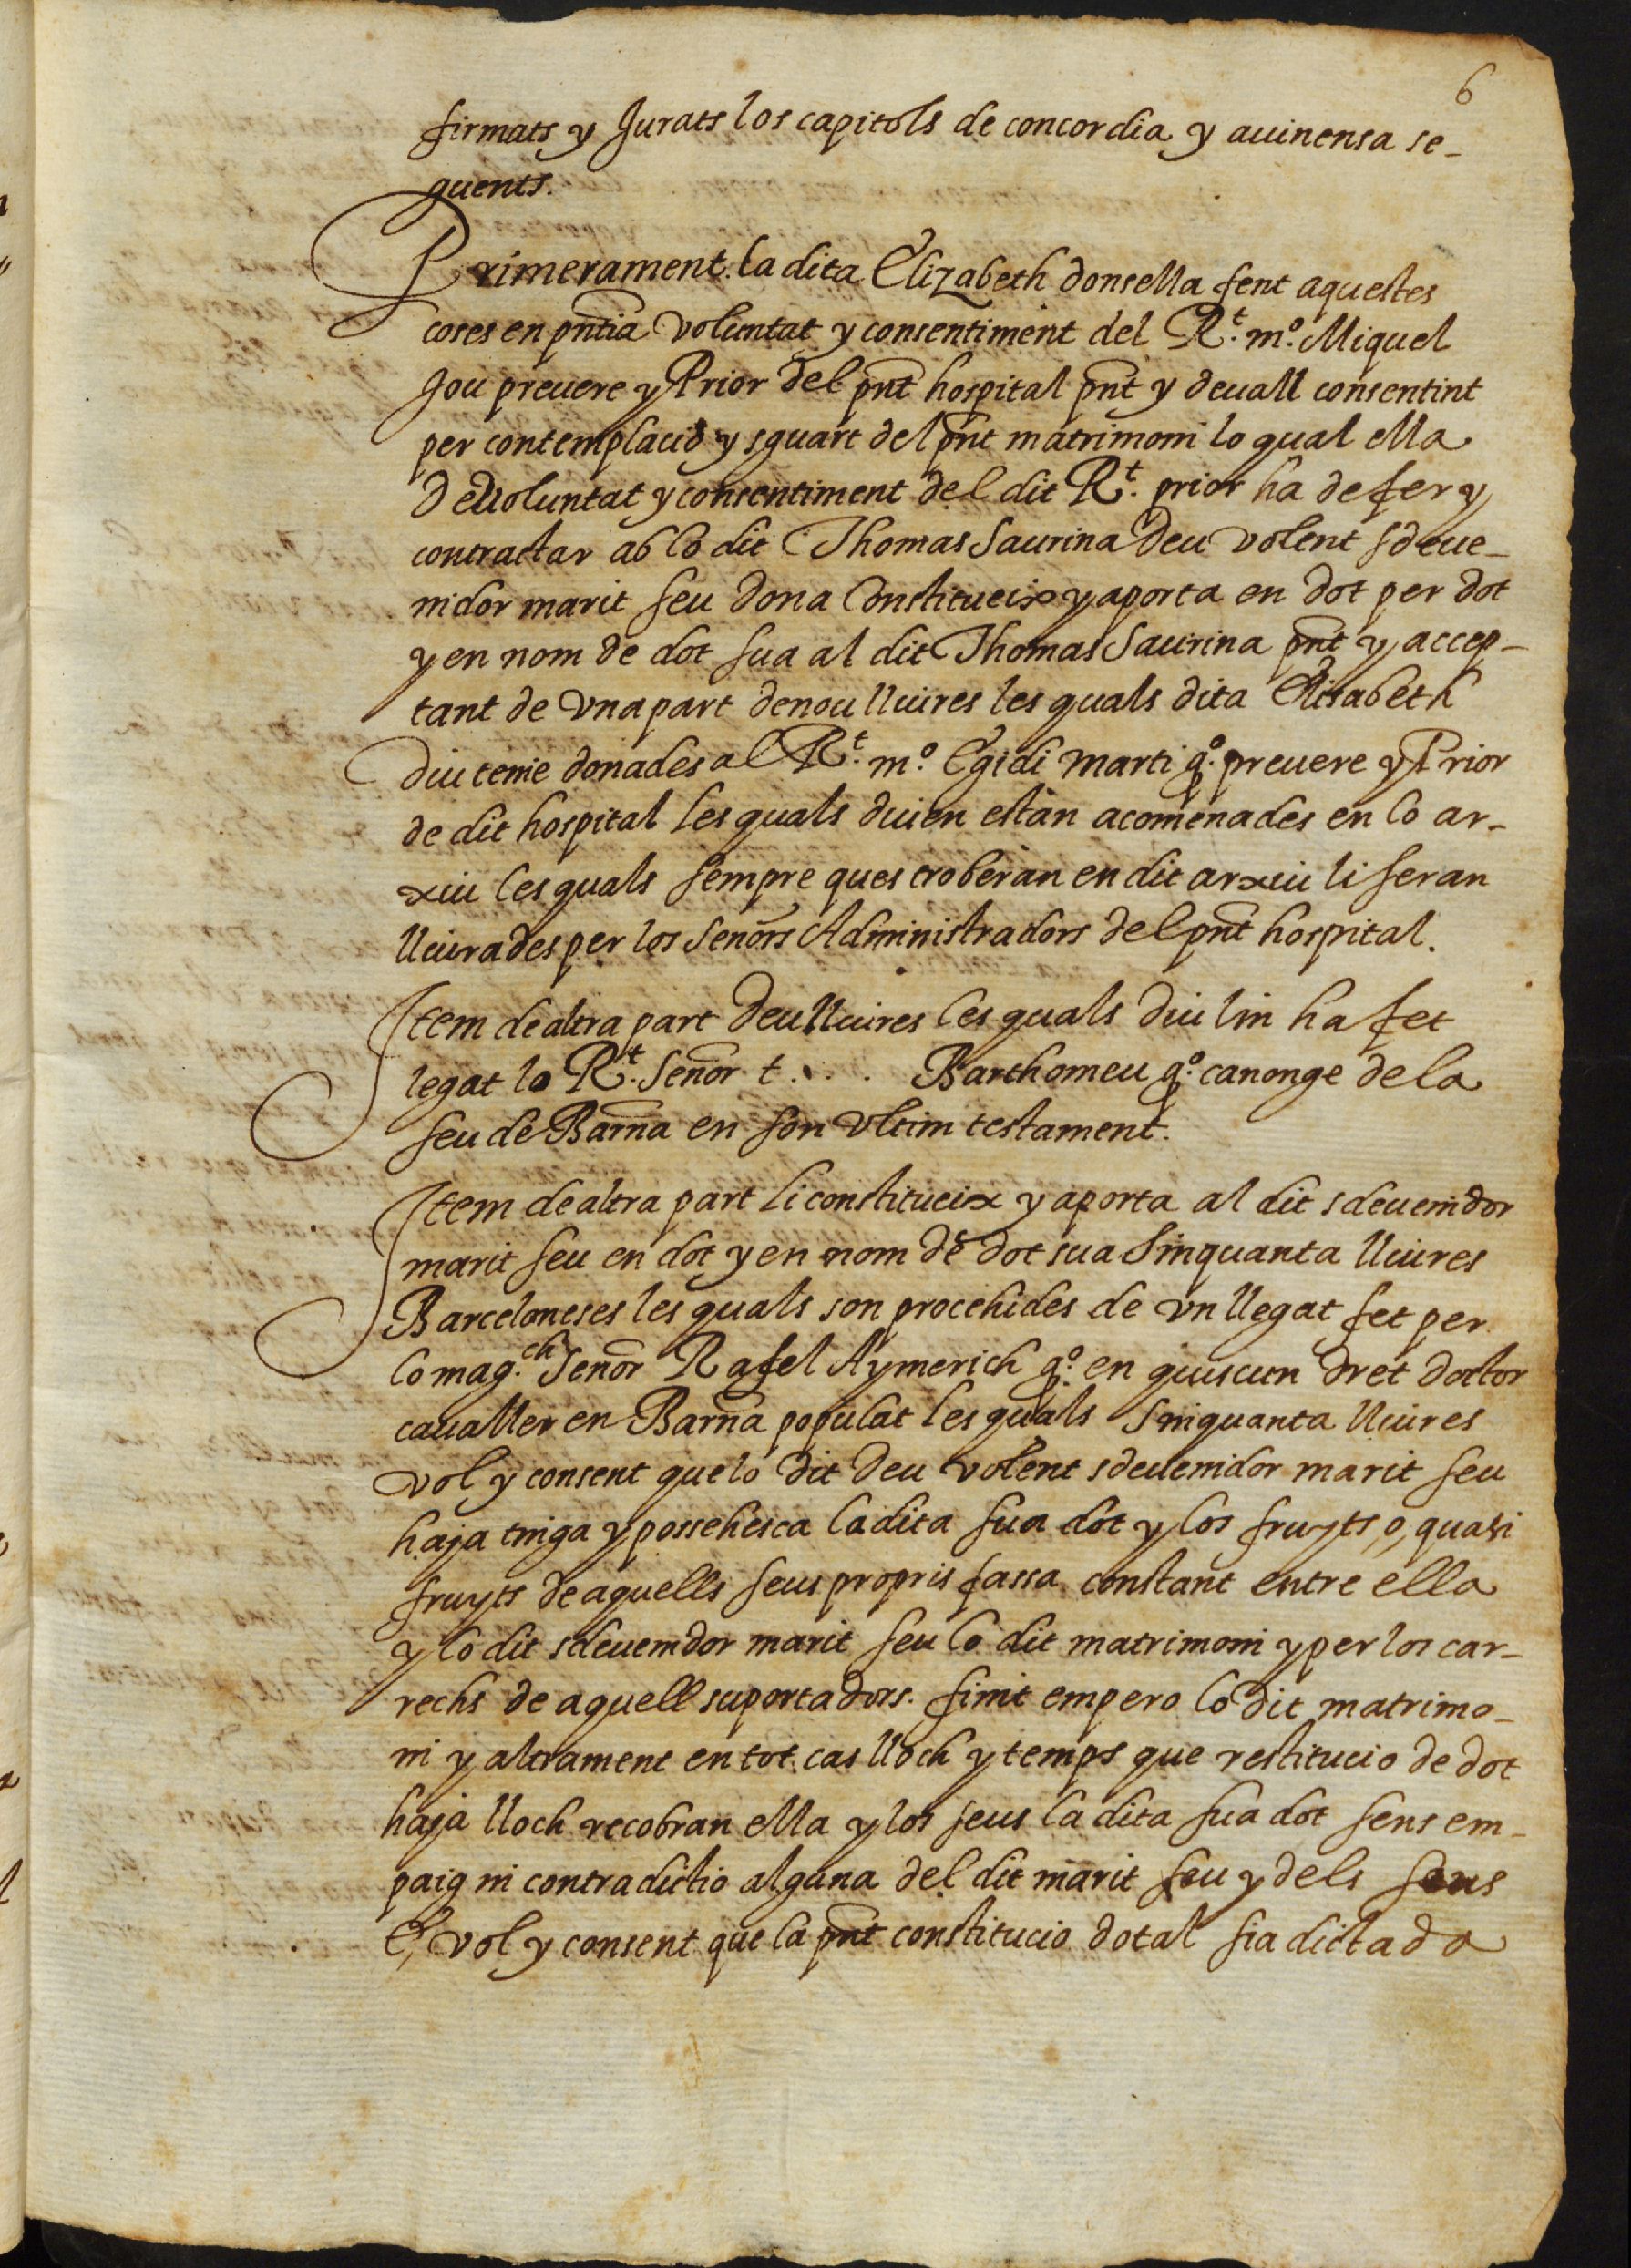 6
firmats y Jurats los capitols de concordia y auinensa se-
guents.
Primerament. la dita Elizabeth donsella fent aquestes
coses en pntia voluntat y consentiment del Rt. mo. Miquel
Jou preuere y Prior del pnt hospital pnt y deuall consentint
per contemplacio y sguart del pnt matrimoni lo qual ella
de voluntat y consentiment del dit Rt. prior ha de fer y
contractar ab lo dit Thomas Saurina Deu volent sdeue-
nidor marit seu dona Constitueix y aporta en dot per dot
y en nom de dot sua al dit Thomas Saurina pnt y accep-
tant de vna part de nou lliures les quals dita Elisabeth
diu tenie donades al Rt. mo. Egidi Marti qo. preuere y Prior
de dit hospital les quals duien estan acomenades en lo ar-
xiu les quals sempre ques troberan en dit arxiu li seran
lliurades per los Señors Administradors del pnt hospital.
Item de altra part deu lliures les quals diu lin ha fet
legat lo Rt. Señor t . . . Barthomeu qo. canonge de la
seu de Barna en son vltim testament.
Item de altra part li constitueix y aporta al dit sdeuenidor
marit seu en dot y en nom de dot sua Sinquanta lliures
Barceloneses les quals son procehides de vn llegat fet per
lo mag.ch Señor Rafel Aymerich qo. en quiscun dret doctor
caualler en Barna populat les quals Sinquanta lliures
vol y consent que lo dit Deu volent sdeuenidor marit seu
haja tinga y possehesca la dita sua dot y los fruyts, o, quasi
fruyts de aquells seus propris fassa constant entre ella
y lo dit sdeuenidor marit seu lo dit matrimoni y per los car-
rechs de aquell suportadors. finit empero lo dit matrimo-
ni y altrament en tot cas lloch y temps que restitucio de dot
haja lloch recobran ella y los seus la dita sua dot sens em-
paig ni contradictio alguna del dit marit seu y dels seus
E, vol y consent que la pnt constitucio dotal sia dictada